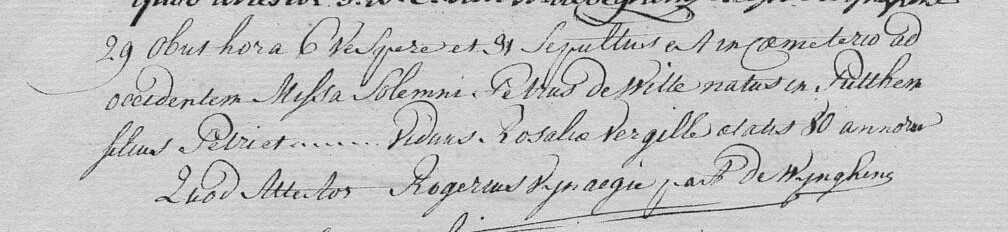 29 obiit hora 6 vespere et 31 sepultus est in cœmeterio ad
occidentem Missa Solemni Petrus de Witte natus in Pitthem
filius Petri et ......... viduus Rosaliæ Vergille ætatis 80 annoru
Quod Attestor Rogerius Vynaegie past de Wynghene